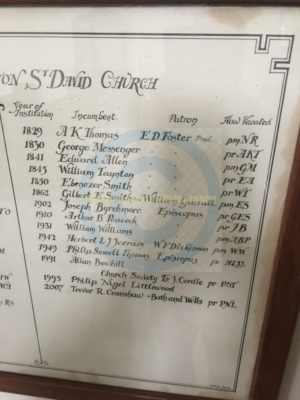 ON ST DAVID CHURCH
Year of Institution Incumbent Patron How Vacated
1829 A K Thomas E D Foster pm NR
1830 George Messenger pr AKT
1841 Edward Allen pm GM
1845 William Taynton pr EA
1850 Ebenezer Smith pr WT
1862 Gilbert E Smith William Garratt pm ES
1902 Joseph Byrchmore Episcopus pr GES
1910 Arthur B Peacock pr JB
1931 William Williams
1942 Herbert L J W F Dickinson pm ABP
1949 Philip Sewell Thomas Episcopus pr
1991 Allan Bowhill
Church Society Tr J. Cordle pr PST
1995 Philip Nigel Littlewood
2007 Trevor R Cranshaw Bath and Wells pr PNL
TO